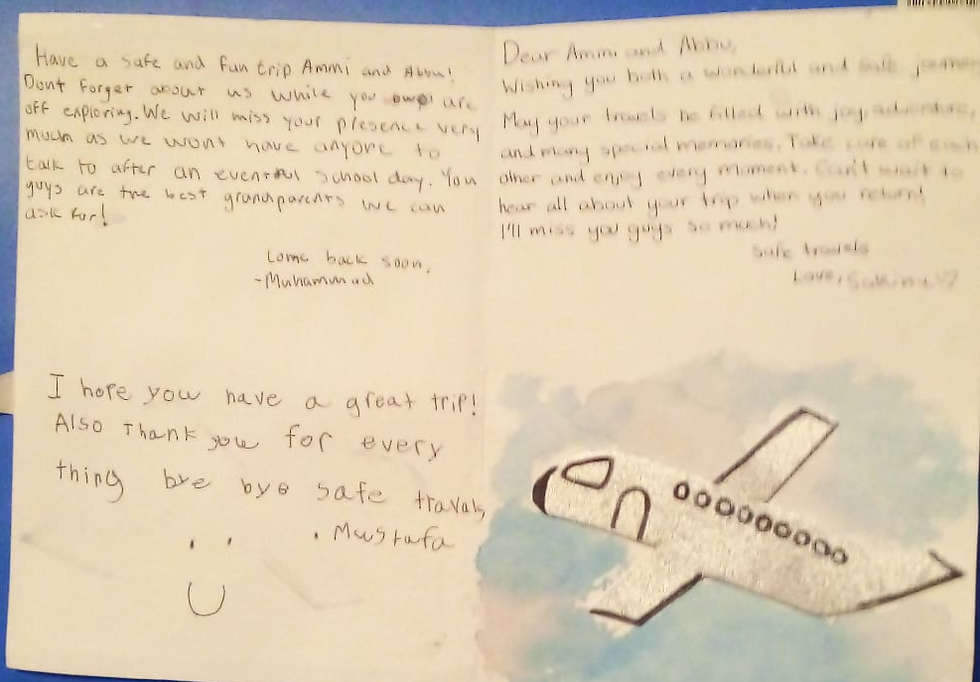 Have a safe and fun trip Ammi and Abbu!
Dont forget about us while you are
off exploring. We will miss your presence very
much as we wont have anyone to
talk to after an eventful school day. You
guys are the best grandparents we can
ask for!
Come back soon,
-Muhammad
I hope you have a great trip!
Also Thank you for every
thing bye bye safe travals,
. Mustafa
Dear Ammi and Abbu,
Wishing you both a wonderful and safe journey
May your travels be filled with joy, adventure,
and many special memories. Take care of each
other and enjoy every moment. Can't wait to
hear all about your trip when you return!
I'll miss you guys so much!
Safe travels
Love, Sakina ♡